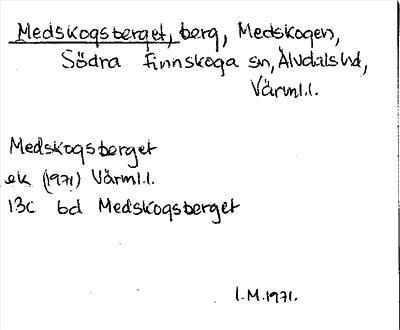 Medskogsberget, berg, Medskogen,
Södra Finnskoga sn, Älvdals hd,
Värml.l.
Medskogsberget
ek (1971) Värml.l.
13c 6d Medskogsberget
I.M.1971.